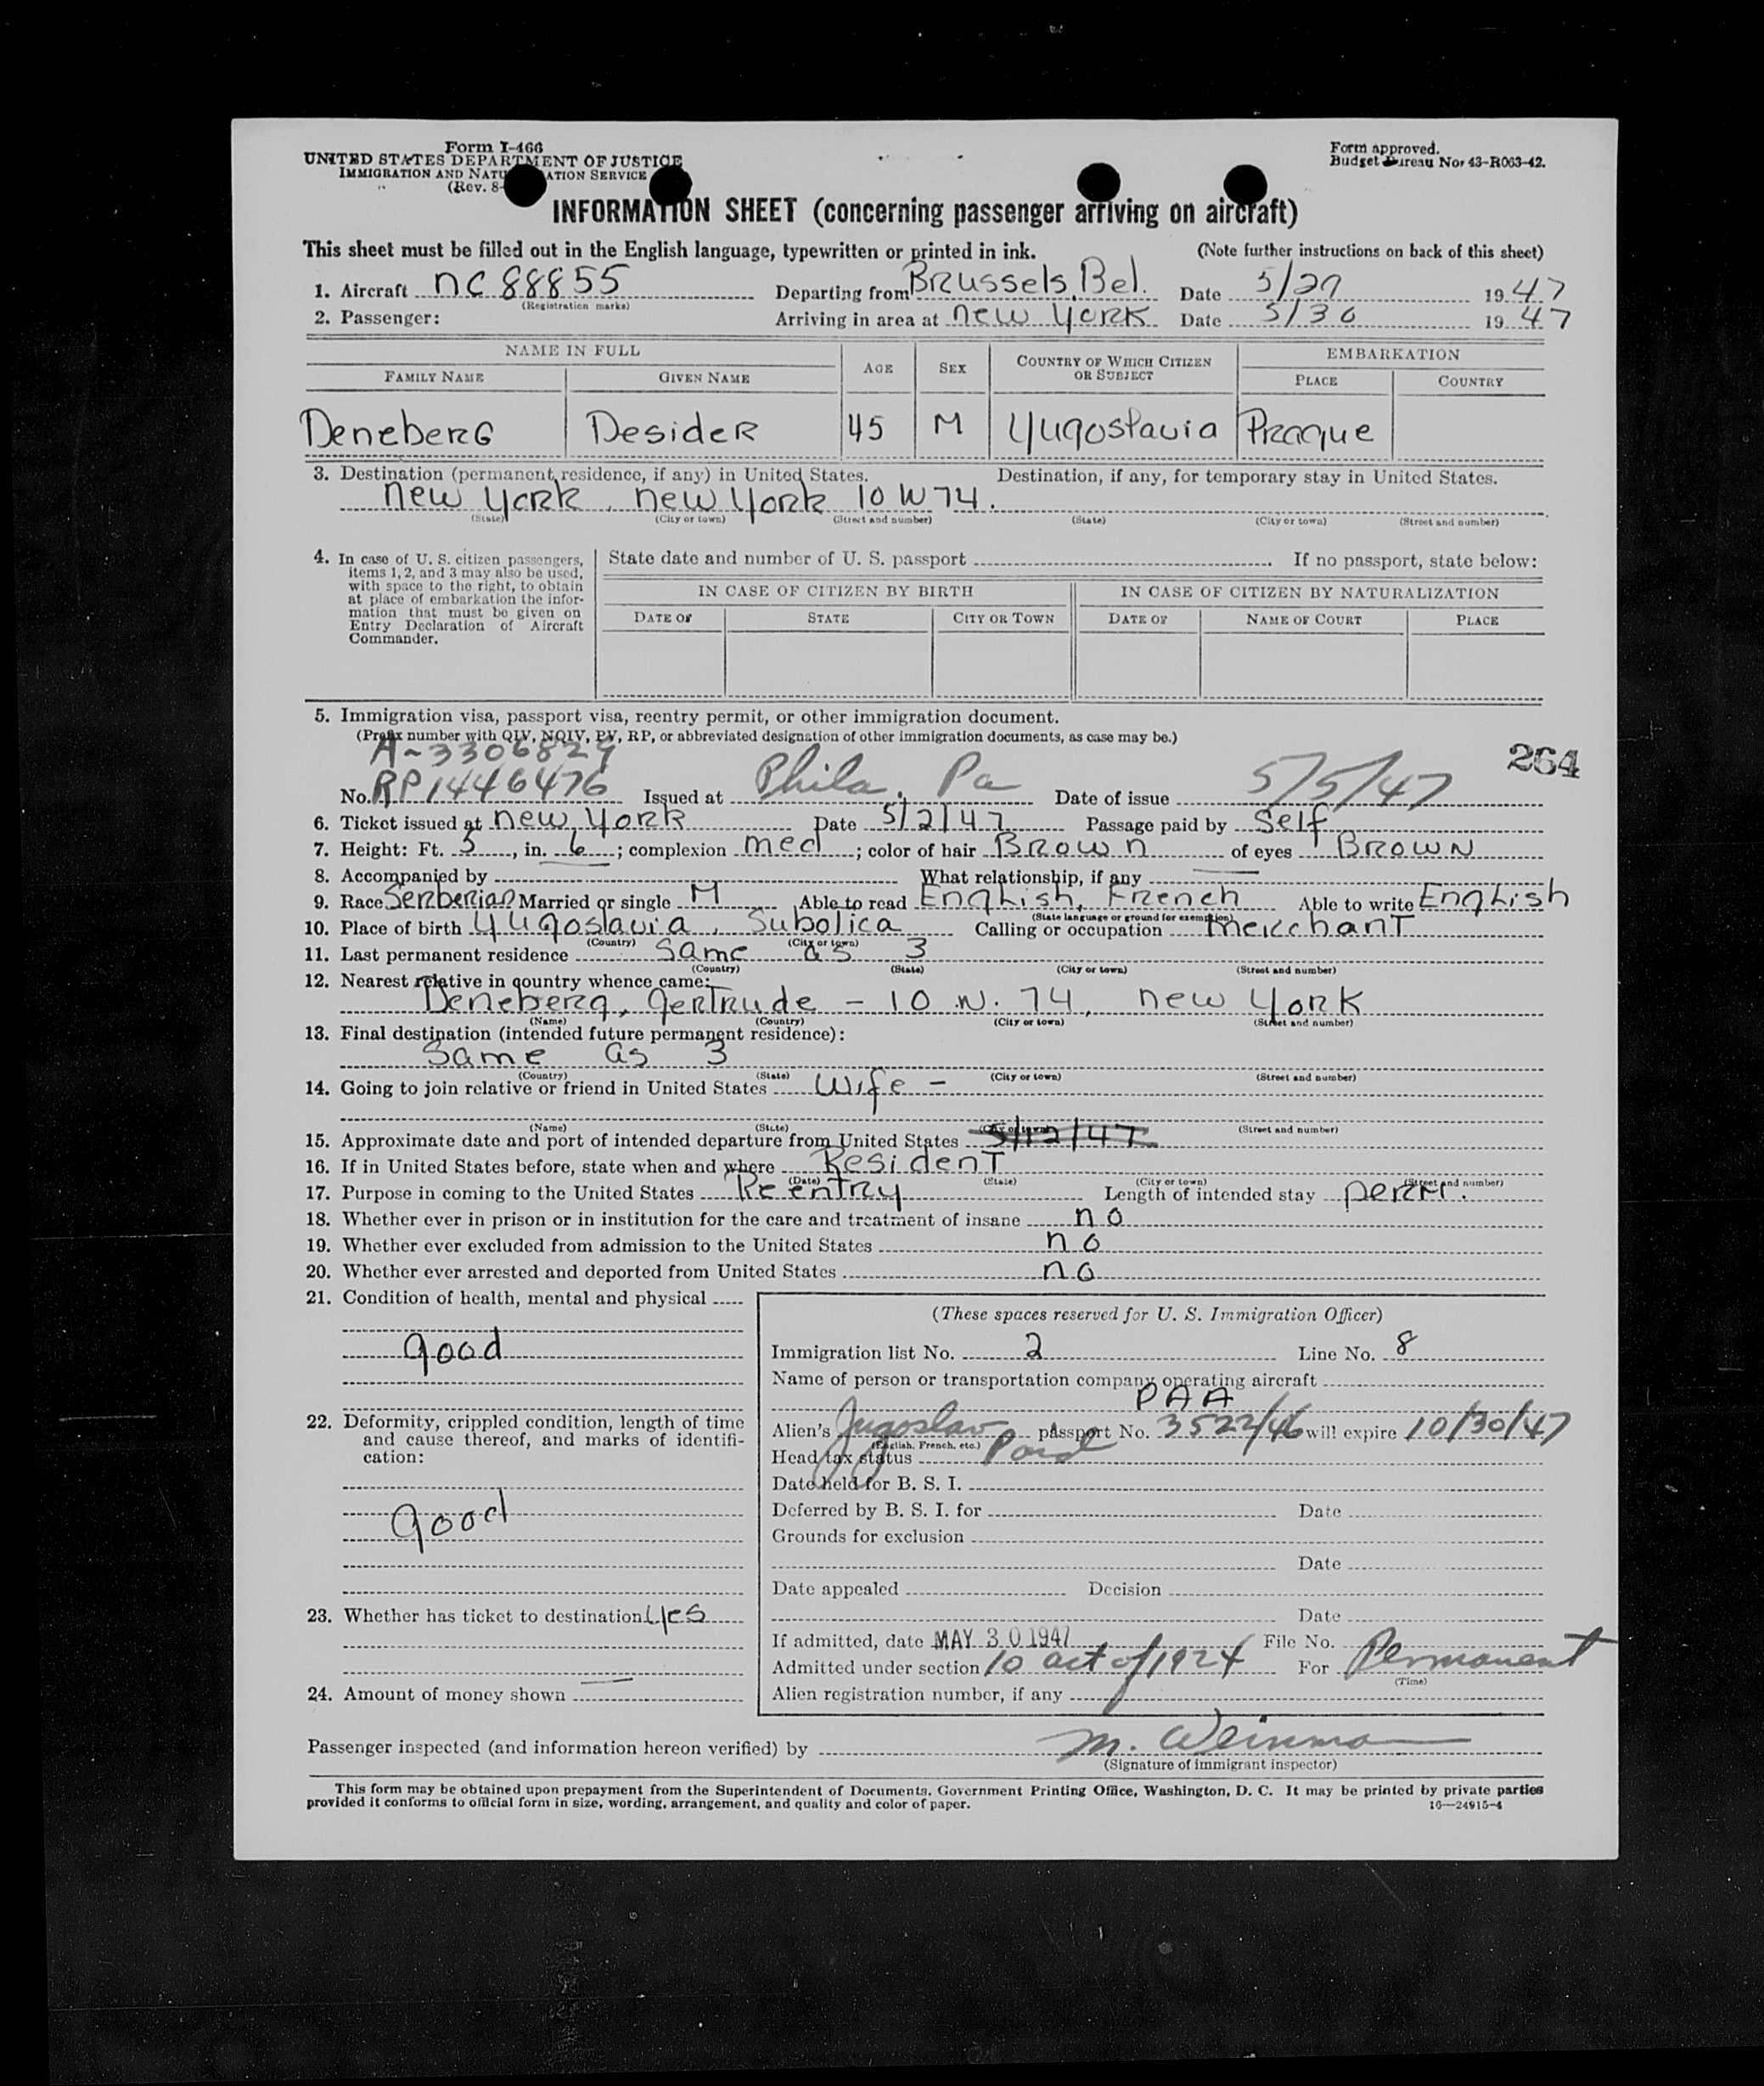 Form I-466
UNITED STATES DEPARTMENT OF JUSTICE
IMMIGRATION AND NATU ATION SERVICE
(Rev. 8-
Form approved.
Budget Bureau No. 43-R063-42.
INFORMATION SHEET (concerning passenger arriving on aircraft)
This sheet must be filled out in the English language, typewritten or printed in ink. (Note further instructions on back of this sheet)
1. Aircraft NC 88855 Departing from Brussels, Bel. Date 5/29 1947
(Registration marks)
2. Passenger: Arriving in area at New York Date 5/30 1947
NAME IN FULL AGE SEX COUNTRY OF WHICH CITIZEN OR SUBJECT EMBARKATION
FAMILY NAME GIVEN NAME PLACE COUNTRY
Deneberg Desider 45 M Yugoslavia Prague
3. Destination (permanent residence, if any) in United States. Destination, if any, for temporary stay in United States.
New York, New York 10 W 74.
(State) (City or town) (Street and number) (State) (City or town) (Street and number)
4. In case of U. S. citizen passengers, items 1, 2, and 3 may also be used, with space to the right, to obtain at place of embarkation the information that must be given on Entry Declaration of Aircraft Commander.
State date and number of U. S. passport If no passport, state below:
IN CASE OF CITIZEN BY BIRTH IN CASE OF CITIZEN BY NATURALIZATION
DATE OF STATE CITY OR TOWN DATE OF NAME OF COURT PLACE
5. Immigration visa, passport visa, reentry permit, or other immigration document.
(Prefix number with QIV, NQIV, PV, RP, or abbreviated designation of other immigration documents, as case may be.)
A-3306829
264
No. RP1446476 Issued at Phila. Pa Date of issue 5/5/47
6. Ticket issued at New York Date 5/2/47 Passage paid by Self
7. Height: Ft. 5, in. 6; complexion Med; color of hair Brown of eyes Brown
8. Accompanied by What relationship, if any
9. Race Serberian Married or single M Able to read English, French Able to write English
(State language or ground for exemption)
10. Place of birth Yugoslavia, Subolica Calling or occupation Merchant
(Country) (City or town)
11. Last permanent residence Same as 3
(Country) (State) (City or town) (Street and number)
12. Nearest relative in country whence came:
Deneberg, Gertrude - 10 W. 74, New York
(Name) (Country) (City or town) (Street and number)
13. Final destination (intended future permanent residence):
Same as 3
(Country) (State) (City or town) (Street and number)
14. Going to join relative or friend in United States Wife -
(Name) (State) (City or town) (Street and number)
15. Approximate date and port of intended departure from United States 5/12/47
16. If in United States before, state when and where Resident
(Date) (State) (City or town) (Street and number)
17. Purpose in coming to the United States Reentry Length of intended stay perm.
18. Whether ever in prison or in institution for the care and treatment of insane no
19. Whether ever excluded from admission to the United States no
20. Whether ever arrested and deported from United States no
21. Condition of health, mental and physical
good
22. Deformity, crippled condition, length of time and cause thereof, and marks of identification:
good
23. Whether has ticket to destination yes
24. Amount of money shown
(These spaces reserved for U. S. Immigration Officer)
Immigration list No. 2 Line No. 8
Name of person or transportation company operating aircraft
PAA
Alien's Jugoslav passport No. 3522/46 will expire 10/30/47
(English, French, etc.)
Head tax status Paid
Date held for B. S. I.
Deferred by B. S. I. for Date
Grounds for exclusion
Date
Date appealed Decision
Date
If admitted, date MAY 30 1947 File No.
Admitted under section 10 act of 1924 For Permanent
(Time)
Alien registration number, if any
Passenger inspected (and information hereon verified) by M. Weinman
(Signature of immigrant inspector)
This form may be obtained upon prepayment from the Superintendent of Documents, Government Printing Office, Washington, D. C. It may be printed by private parties
provided it conforms to official form in size, wording, arrangement, and quality and color of paper. 16—24915-4